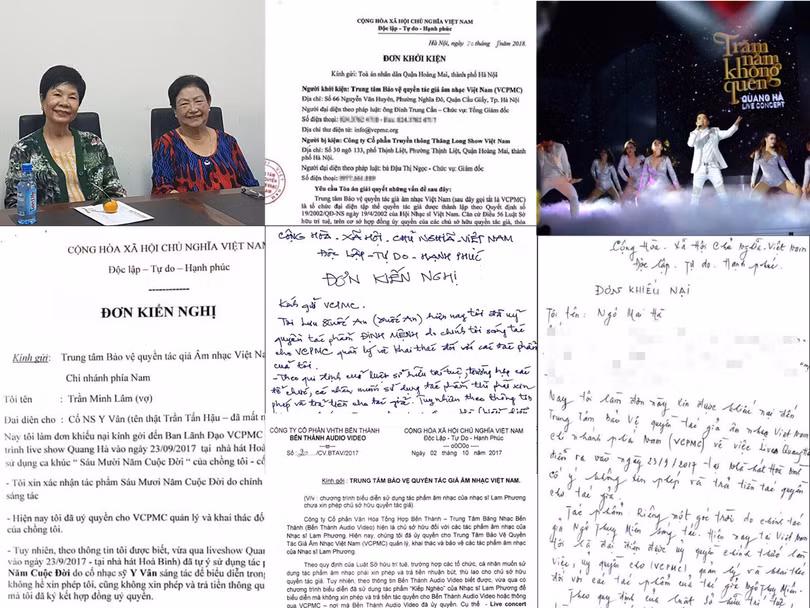 CỘNG HÒA XÃ HỘI CHỦ NGHĨA VIỆT NAM
Độc lập - Tự do - Hạnh phúc
Hà Nội, ngày tháng năm 2018.
ĐƠN KHỞI KIỆN
Kính gửi: Toà án nhân dân Quận Hoàng Mai, thành phố Hà Nội
Người khởi kiện: Trung tâm Bảo vệ quyền tác giả âm nhạc Việt Nam (VCPMC)
Địa chỉ: Số 66 Nguyễn Văn Huyên, Phường Nghĩa Đô, Quận Cầu Giấy, Tp. Hà Nội
Người đại diện theo pháp luật: ông Đinh Trung Cẩn – Chức vụ: Tổng Giám đốc
Số điện thoại:
Địa chỉ thư điện tử: info@vcpmc.org
Người bị kiện: Công ty Cổ phần Truyền thông Thăng Long Show Việt Nam
Địa chỉ: Số 30 ngõ 133, phố Thịnh Liệt, Phường Thịnh Liệt, Quận Hoàng Mai, thành
phố Hà Nội.
Người đại diện theo pháp luật: bà Địa Thị Ngọc - Chức vụ: Giám đốc
Số điện thoại:
Yêu cầu Tòa án giải quyết những vấn đề sau đây:
Trung tâm Bảo vệ quyền tác giả âm nhạc Việt Nam (sau đây gọi tắt là VCPMC)
là tổ chức đại diện tập thể quyền tác giả được thành lập theo Quyết định số
19/2002/QĐ-NS ngày 19/4/2002 của Hội Nhạc sĩ Việt Nam. Căn cứ Điều 56 Luật Sở
hữu trí tuệ, trên cơ sở hợp đồng ủy quyền của các chủ sở hữu quyền tác giả, thỏa
Trăm
năm
không
quên
QUANG HÀ
LIVE CONCERT
CỘNG HÒA XÃ HỘI CHỦ NGHĨA VIỆT NAM
Độc lập – Tự do – Hạnh phúc
------------
ĐƠN KIẾN NGHỊ
Kính gửi: Trung tâm Bảo vệ quyền tác quả Âm nhạc Việt Na
Chi nhánh phía Nam
Tôi tên : Trần Minh Lâm (vợ)
Đại diện cho : Cố NS Y Vân (tên thật Trần Tấn Hậu) – đã mất n
Nay tôi làm đơn khiếu nại kính gởi đến Ban Lãnh Đạo VCPMC
trình live show Quang Hà vào ngày 23/09/2017 tại nhà hát Hoà
sử dụng ca khúc “ Sáu Mười Năm Cuộc Dời “ của chồng tôi - cố
- Tôi xin xác nhận tác phẩm Sáu Mươi Năm Cuộc Dời do chính
sáng tác
- Hiện nay tôi đã uỷ quyền cho VCPMC quản lý và khai thác đố
của chồng tôi
- Tuy nhiên, theo thông tin tôi được biết, vừa qua liveshow Quang
vào ngày 23/9/2017 - tại nhà hát Hoà Bình) đã tự ý sử dụng tác p
Năm Cuộc Dời do cố nhạc sỹ Y Vân sáng tác để biểu diễn trong
không hề xin phép tôi, cũng không xin phép và trả tiền thông qua
mà tôi đã ký kết hợp đồng uỷ quyền.
CỘNG HÒA - XÃ HỘI - CHỦ NGHĨA - VIỆT NAM
ĐỘC LẬP - TỰ DO - HẠNH PHÚC
ĐƠN KIẾN NGHỊ
Kính gửi VCPMC.
Tôi Lưu Quốc Ân (Xuân An) hiện nay tôi đã uỷ
quyền tác phẩm ĐỊNH MỆNH do chính tôi sáng tác
cho VCPMC quản lý và khai thác đối với các tác phẩm
của tôi.
- Theo qui định của luật sở hữu trí tuệ, trường hợp các
tổ chức, cá nhân muốn sử dụng tác phẩm thì phải xin
phép và trả tiền cho tác giả. Tuy nhiên theo thông tin
CÔNG TY CỔ PHẦN VHTH BẾN THÀNH
BẾN THÀNH AUDIO VIDEO
Số: /CV.BTAV/2017
CỘNG HOÀ XÃ HỘI CHỦ NGHĨA VIỆT NAM
Độc Lập - Tự Do - Hạnh Phúc
---oOOo---
Ngày 02 tháng 10 năm 2017
Kính gởi : TRUNG TÂM BẢO VỆ QUYỀN TÁC GIẢ ÂM NHẠC VIỆT NAM
(V/v : chương trình biểu diễn sử dụng tác phẩm âm nhạc của nhạc sĩ Lam Phương
chưa xin phép chủ sở hữu quyền tác giả)
Công ty Cổ Phần Văn Hóa Tổng Hợp Bến Thành – Trung Tâm Băng Nhạc Bến
Thành (Bến Thành Audio Video) hiện là chủ sở hữu đối với các tác phẩm âm nhạc
của Nhạc sĩ Lam Phương. Hiện nay, chúng tôi đã ủy quyền cho Trung Tâm Bảo Vệ Quyền
Tác Giả Âm Nhạc Việt Nam (VCPMC) quản lý, khai thác và bảo vệ các tác phẩm âm
nhạc của Nhạc sĩ Lam Phương.
Theo quy định của Luật Sở hữu trí tuệ, trường hợp các tổ chức, cá nhân muốn sử
dụng tác phẩm âm nhạc phải xin phép và trả tiền nhuận bút, thù lao cho chủ sở hữu quyền
tác giả. Tuy nhiên, theo thông tin Bến Thành Audio Video biết được, vừa qua có
chương trình biểu diễn đã sử dụng tác phẩm “Kiếp Nghèo” của Nhạc sĩ Lam Phương để
biểu diễn mà không xin phép và trả tiền tác quyền cho Bến Thành Audio Video hoặc thông
qua VCPMC – nơi mà Bến Thành Audio Video đã ủy quyền. Cụ thể: - Live concert
Cộng Hòa. Xã Hội Chủ Nghĩa. Việt Nam
Độc lập. Tự do. Hạnh phúc.
ĐƠN KHIẾU NẠI
Tôi tên: Ngô Mai Hà
Nay tôi làm đơn này xin được khiếu nại đến
Trung Tâm Bảo Vệ quyền tác giả âm nhạc Việt Nam
chi nhánh phía Nam (VCPMC) về việc Live Quang Hà
diễn ra vào ngày 23/9/2017 tại nhà hát Hoà Bình
cố ý không xin phép và trả tiền tác quyền
cho tác giả.